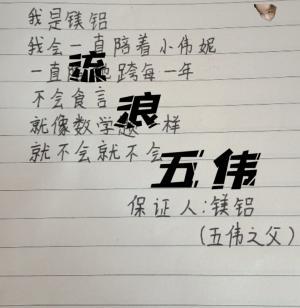 我是镁铝
我会一直陪着小伟妮
一直跨每一年
不会食言
就像数学题一样
就不会就不会
流浪五伟
保证人:镁铝
(五伟之父)